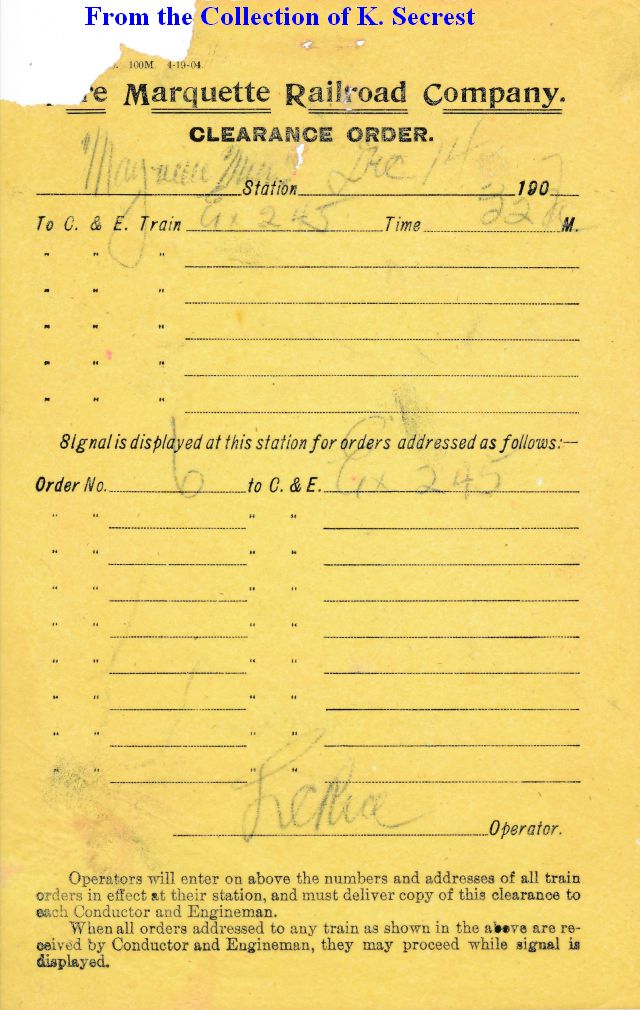 From the Collection of K. Secrest
100M. 4-19-04.
re Marquette Railroad Company.
CLEARANCE ORDER.
Station Dec 14 190
To C. & E. Train Ex 245 Time M.
" " "
" " "
" " "
" " "
" " "
Signal is displayed at this station for orders addressed as follows:—
Order No. 6 to C. & E. Ex 245
" " " "
" " " "
" " " "
" " " "
" " " "
" " " "
" " " "
" " " "
Operator.
Operators will enter on above the numbers and addresses of all train
orders in effect at their station, and must deliver copy of this clearance to
each Conductor and Engineman.
When all orders addressed to any train as shown in the above are re-
ceived by Conductor and Engineman, they may proceed while signal is
displayed.